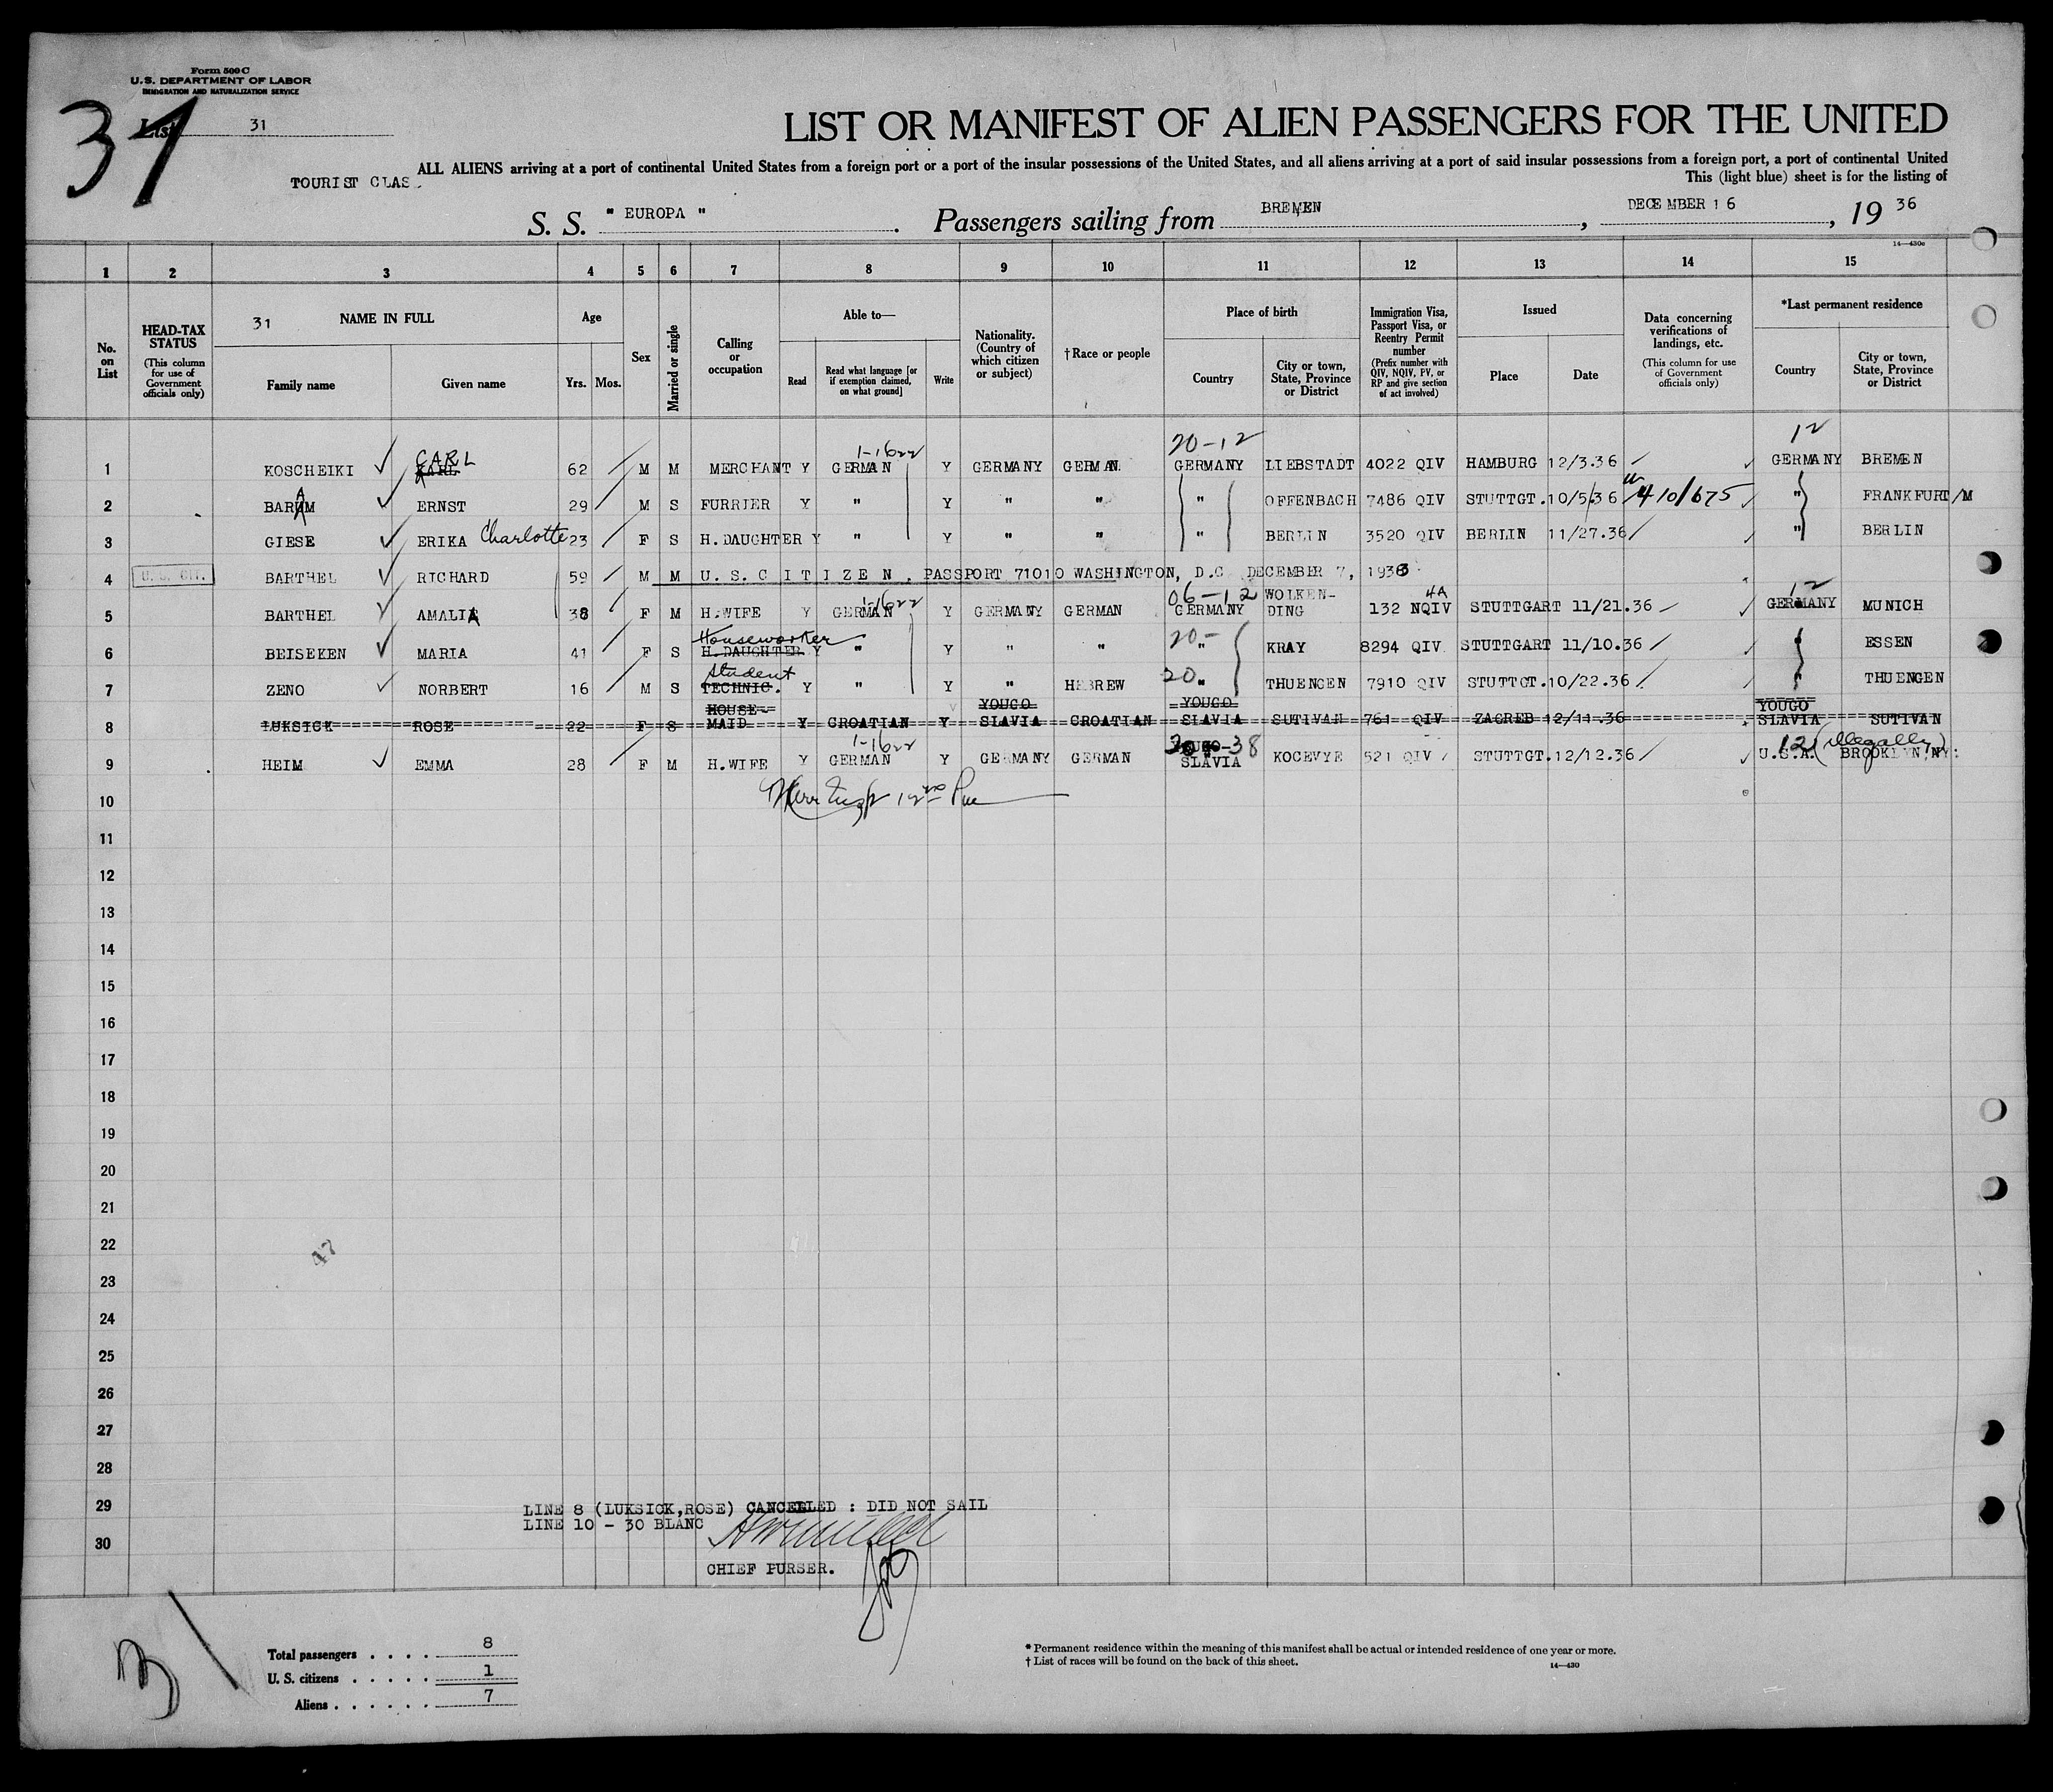 Form 500 C
U.S. DEPARTMENT OF LABOR
IMMIGRATION AND NATURALIZATION SERVICE
31
List 31
LIST OR MANIFEST OF ALIEN PASSENGERS FOR THE UNITED
ALL ALIENS arriving at a port of continental United States from a foreign port or a port of the insular possessions of the United States, and all aliens arriving at a port of said insular possessions from a foreign port, a port of continental United
TOURIST CLAS
This (light blue) sheet is for the listing of
S. S. " EUROPA ". Passengers sailing from BREMEN, DECEMBER 16, 19 36
14—430c
1 2 3 4 5 6 7 8 9 10 11 12 13 14 15
No. on List
HEAD-TAX STATUS
(This column for use of Government officials only)
31 NAME IN FULL
Family name
Given name
Age
Yrs.
Mos.
Sex
Married or single
Calling or occupation
Able to—
Read
Read what language [or if exemption claimed, on what ground]
Write
Nationality. (Country of which citizen or subject)
†Race or people
Place of birth
Country
City or town, State, Province or District
Immigration Visa, Passport Visa, or Reentry Permit number
(Prefix number with QIV, NQIV, PV, or RP and give section of act involved)
Issued
Place
Date
Data concerning verifications of landings, etc.
(This column for use of Government officials only)
*Last permanent residence
Country
City or town, State, Province or District
CARL 1-1622 20-12 12
1 KOSCHEIKI KARL 62 M M MERCHANT Y GERMAN Y GERMANY GERMAN GERMANY LIEBSTADT 4022 QIV HAMBURG 12/3.36 GERMANY BREMEN
2 BARAM ERNST 29 M S FURRIER Y " Y " " " OFFENBACH 7486 QIV STUTTGT. 10/5/36 410/675 " FRANKFURT/M
3 GIESE ERIKA Charlotte 23 F S H. DAUGHTER Y " Y " " " BERLIN 3520 QIV BERLIN 11/27.36 " BERLIN
4 U. S. CIT. BARTHEL RICHARD 59 M M U. S. C I T I Z E N . PASSPORT 71010 WASHINGTON, D.C DECEMBER 7, 1936
1-1622 06-12 4A 12
5 BARTHEL AMALIA 38 F M H.WIFE Y GERMAN Y GERMANY GERMAN GERMANY WOLKEN-DING 132 NQIV STUTTGART 11/21.36 GERMANY MUNICH
Houseworker 20-
6 BEISEKEN MARIA 41 F S H. DAUGHTER Y " Y " " " KRAY 8294 QIV STUTTGART 11/10.36 " ESSEN
Student 20
7 ZENO NORBERT 16 M S TECHNIC. Y " Y " HEBREW " THUENGEN 7910 QIV STUTTGT. 10/22.36 " THUENGEN
8 LUKSICK ROSE 22 F S HOUSE-MAID Y CROATIAN Y YOUGO SLAVIA CROATIAN YOUGO SLAVIA SUTIVAN 761 QIV ZAGREB 12/11.36 YOUGO SLAVIA SUTIVAN
1-1622 38 12 (illegally)
9 HEIM EMMA 28 F M H.WIFE Y GERMAN Y GERMANY GERMAN YOUGO-SLAVIA KOCEVYE 521 QIV STUTTGT. 12/12.36 U.S.A. BROOKLYN, NY:
10
11
12
13
14
15
16
17
18
19
20
21
22
47
23
24
25
26
27
28
29
LINE 8 (LUKSICK,ROSE) CANCELLED : DID NOT SAIL
LINE 10 - 30 BLANC
30
CHIEF PURSER.
Total passengers . . . . 8
U. S. citizens . . . . . 1
Aliens . . . . . . 7
* Permanent residence within the meaning of this manifest shall be actual or intended residence of one year or more.
† List of races will be found on the back of this sheet.
14—430